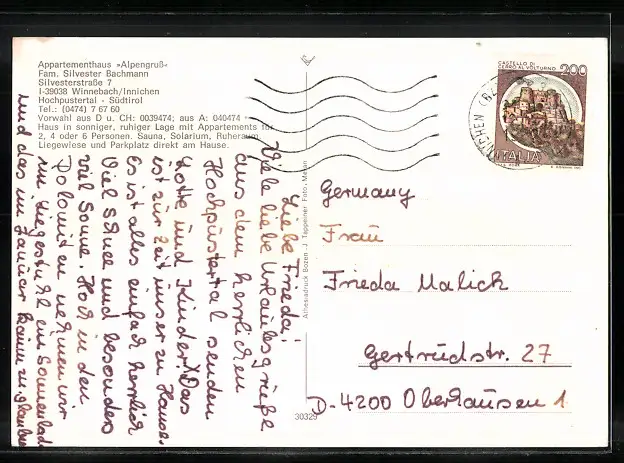 Appartementhaus »Alpengruß«
Fam. Silvester Bachmann
Silvesterstraße 7
I-39038 Winnebach/Innichen
Hochpustertal - Südtirol
Tel.: (0474) 7 67 60
Vorwahl aus D u. CH: 0039474; aus A: 040474
Haus in sonniger, ruhiger Lage mit Appartements für
2, 4 oder 6 Personen. Sauna, Solarium, Ruheraum
Liegewiese und Parkplatz direkt am Hause.
Liebe Frieda!
Viele liebe Urlaubsgrüße
aus dem herrlichen
Hochpustertal senden
Lotte und Kinder! Das
ist zur Zeit unser zu Hause.
Es ist alles einfach herrlich
Viel Schnee und besonders
viel Sonne. Hoch in den
Dolomiten nehmen wir
im Liegestuhl ein Sonnenbad
und das im Januar kaum zu glauben
30329
Athesiadruck Bozen J. Tappeiner Foto-Meran
CASTELLO DI
CERRO AL VOLTURNO
200
ITALIA
Germany
Frau
Frieda Malick
Gertrudstr. 27
D-4200 Oberhausen 1